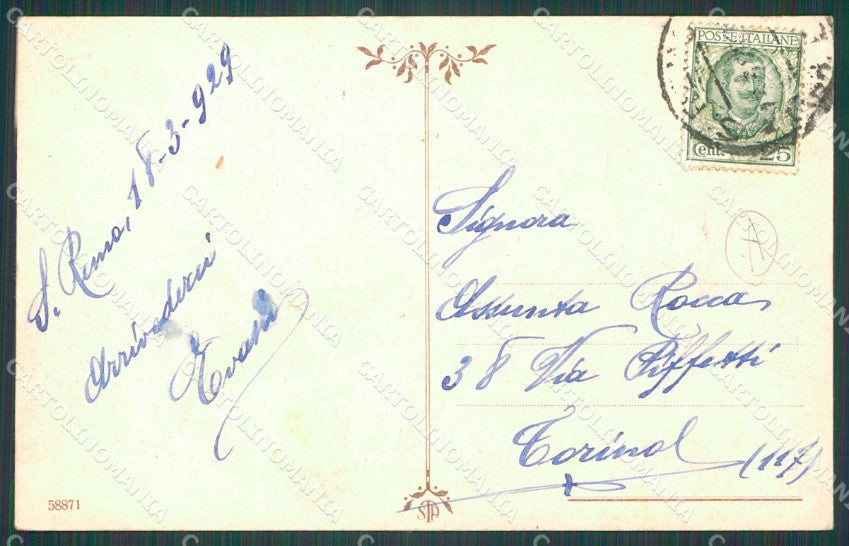 S. Remo, 18-3-929
Arrivederci
POSTE ITALIANE
Cent. 25
Signora
Assunta Rocca
38 Via Piffetti
Torino
(117)
58871
CARTOLINOMANIA